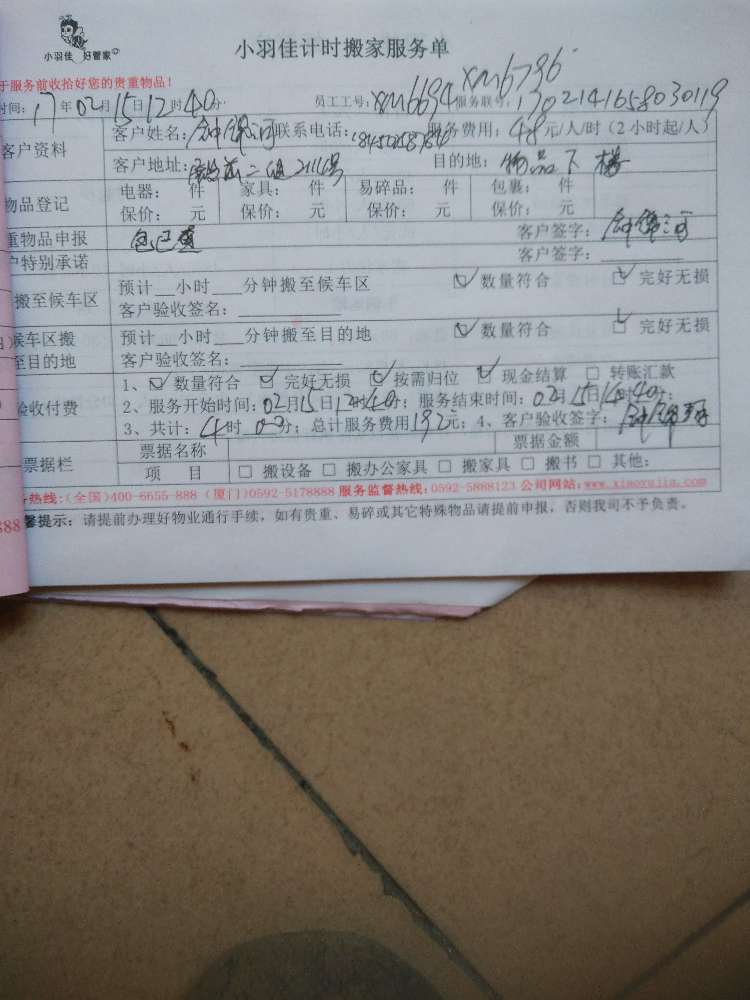 小羽佳 好管家
小羽佳计时搬家服务单
于服务前收拾好您的贵重物品!
时间: 17年02月15日12时40分 员工工号: XM6694 XM6796 服务联号: 1702141658030119
客户资料 客户姓名: 联系电话: 服务费用: 48元/人/时(2小时起/人)
客户地址: 目的地: 物品下楼
物品登记 电器: 件 家具: 件 易碎品: 件 包裹: 件
保价: 元 保价: 元 保价: 元 保价: 元
重物品申报 客户签字:
户特别承诺 客户签字:
搬至候车区 预计__小时___分钟搬至候车区 ☑数量符合 ☑完好无损
客户验收签名:
候车区搬至目的地 预计__小时___分钟搬至目的地 ☑数量符合 ☑完好无损
客户验收签名:
验收付费 1、☑数量符合 ☑完好无损 ☑按需归位 ☑现金结算 □转账汇款
2、服务开始时间: 02月15日12时40分; 服务结束时间: 02月15日14时40分;
3、共计: 4时00分; 总计服务费用192元; 4、客户验收签字:
票据栏 票据名称 票据金额
项 目 □搬设备 □搬办公家具 □搬家具 □搬书 □其他:
务热线:(全国)400-6655-888 (厦门)0592-5178888 服务监督热线:0592-5888123 公司网站:www.xiaoyujia.com
馨提示: 请提前办理好物业通行手续, 如有贵重、易碎或其它特殊物品请提前申报, 否则我司不予负责。
888